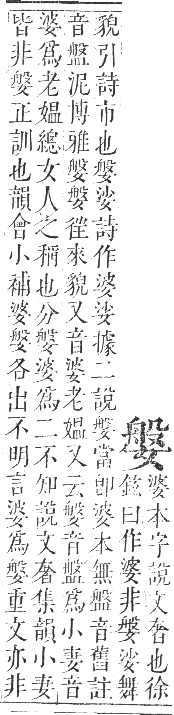 媻
婆本字說文奢也徐
鉉曰作婆非媻娑舞
貌引詩市也媻娑詩作婆娑據二說媻當卽婆本無盤音舊註
音盤泥博雅媻媻徃來貌又音婆老媼又云媻音盤爲小妻音
婆爲老媼緫女人之稱也分媻婆爲二不知說文奢集韻小妻
皆非媻正訓也韻會小補婆媻各出不明言婆爲媻重文亦非